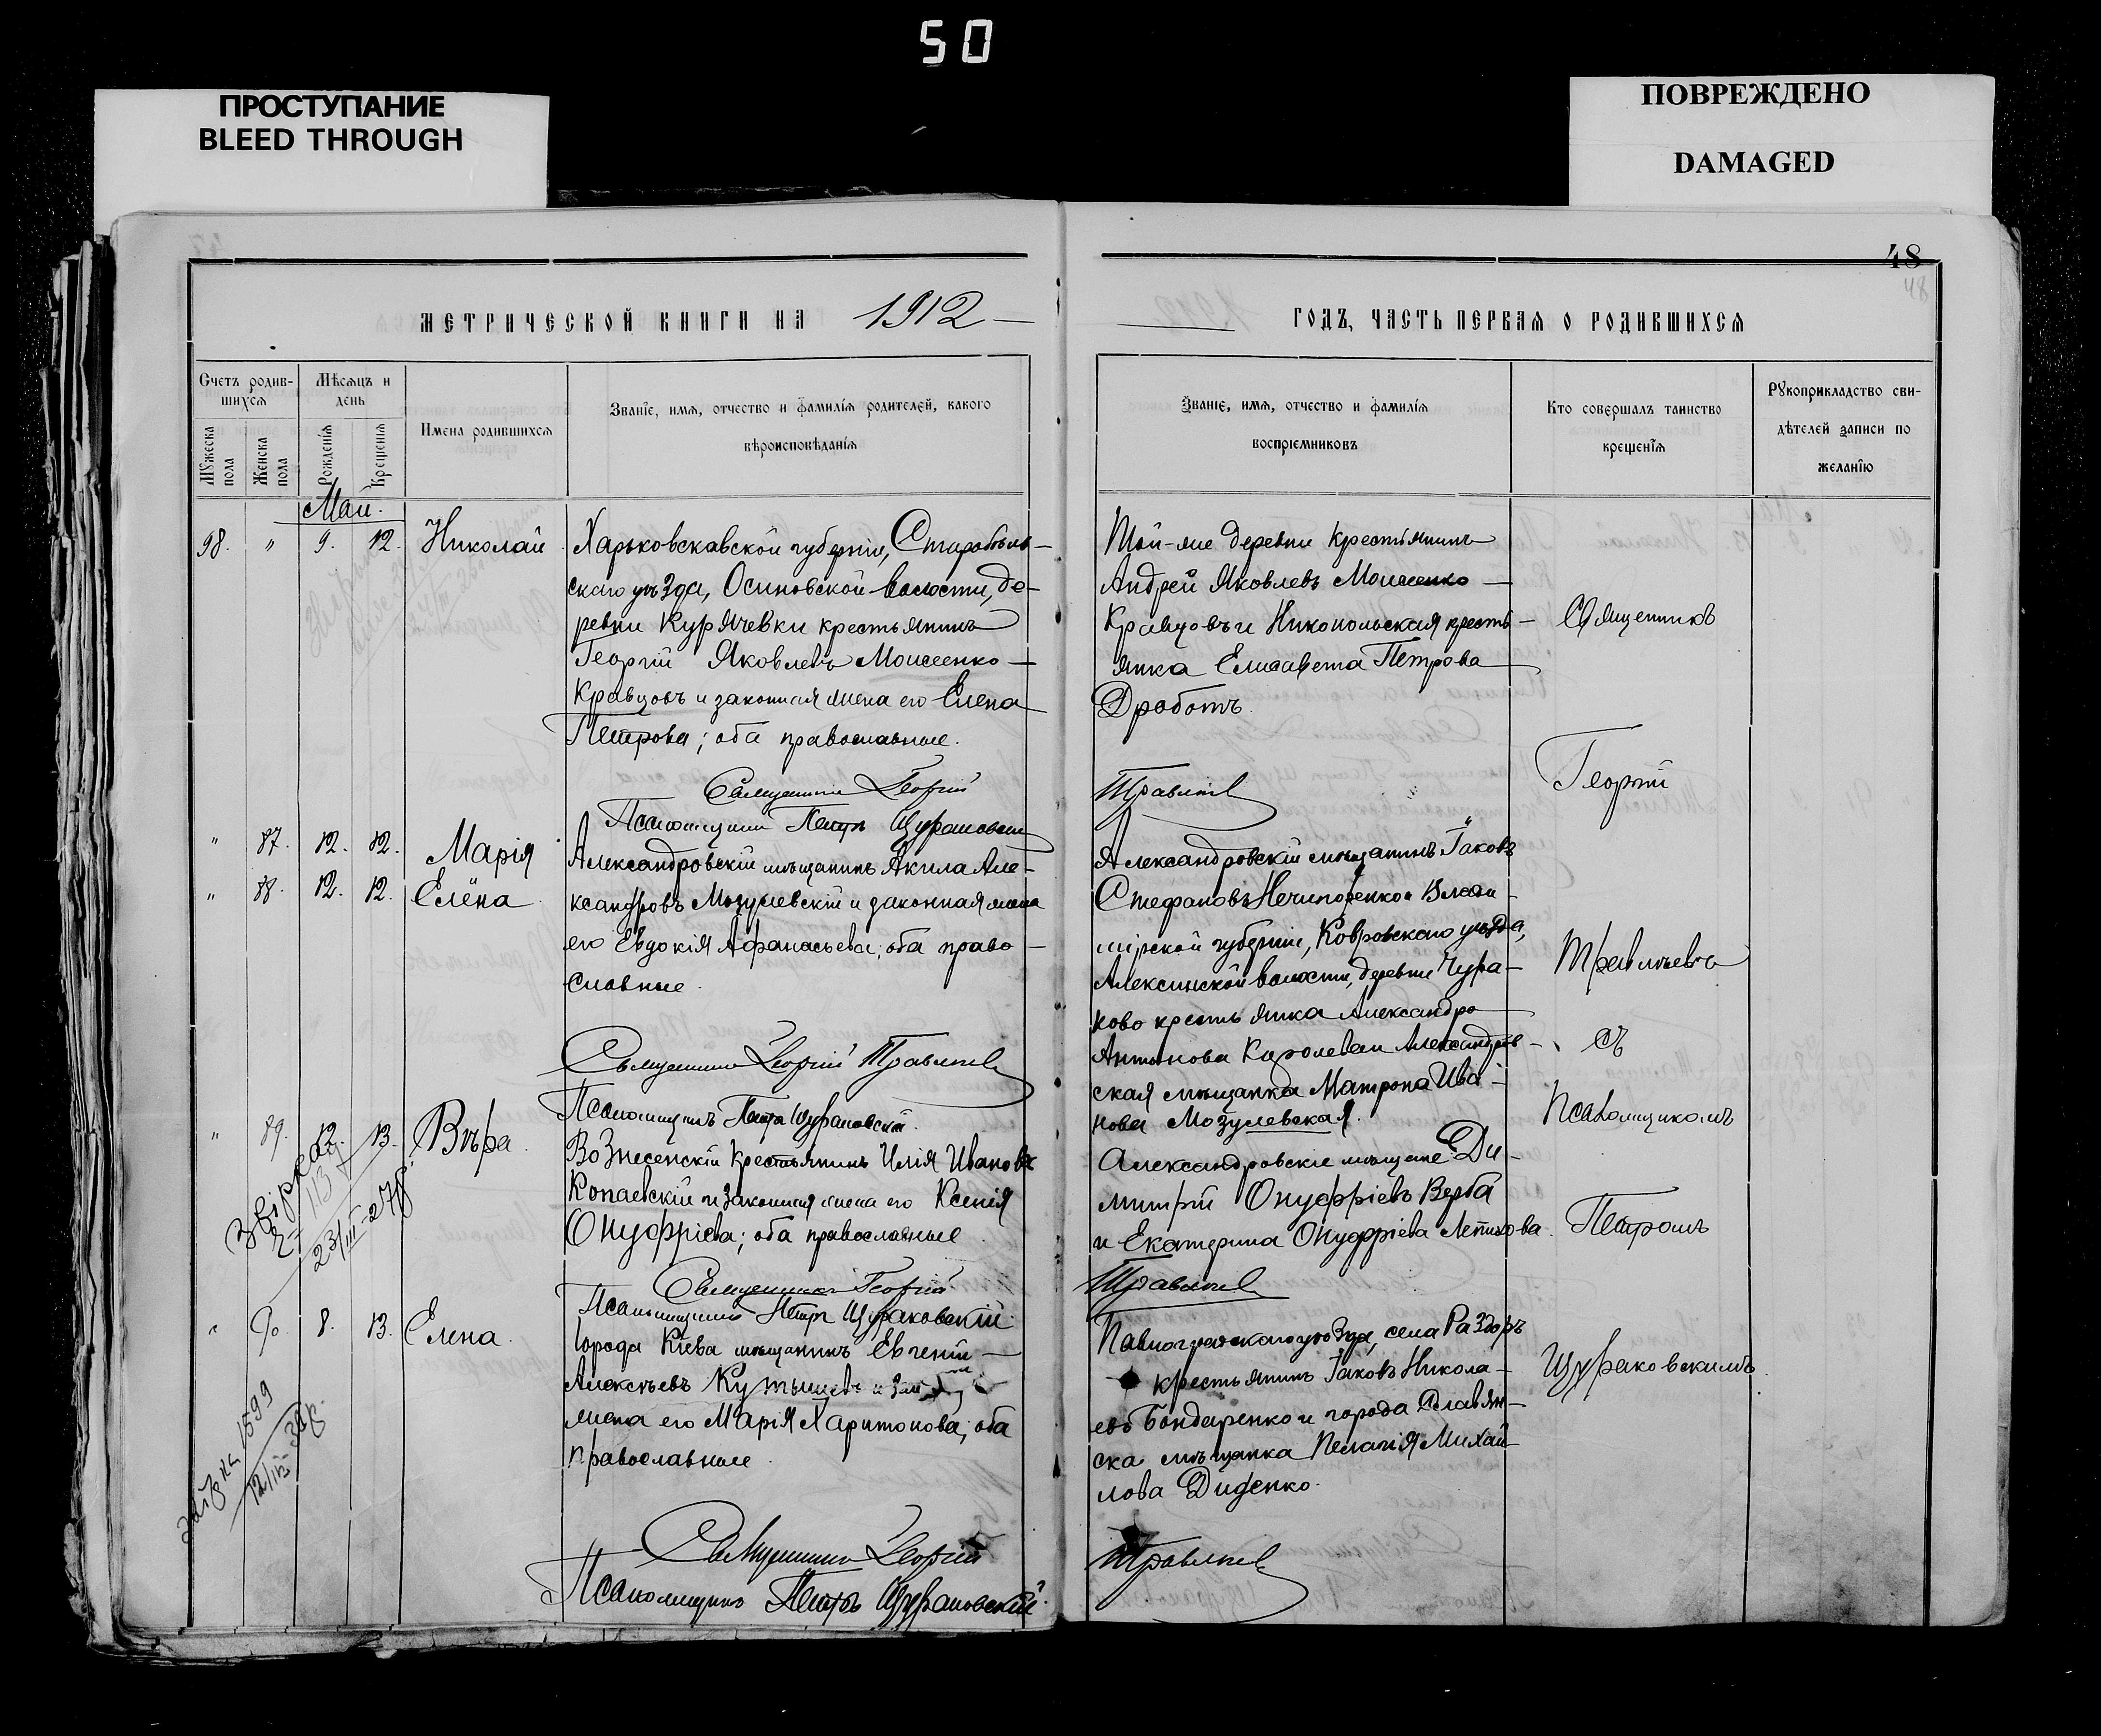 50
ПРОСТУПАНИЕ
BLEED THROUGH
ПОВРЕЖДЕНО
DAMAGED
48
48
МЕТРИЧЕСКОЙ КНИГИ НА 1912
ГОДЪ, ЧАСТЬ ПЕРВАЯ О РОДИВШИХСЯ
Счетъ родив-
шихся
Мѣсяцъ и
день
Мужеска
пола
Женска
пола
Рожденія
Крещенія
Имена родившихся
Званіе, имя, отчество и фамилія родителей, какого
вѣроисповѣданія
Званіе, имя, отчество и фамилія
воспріемниковъ
Кто совершалъ таинство
крещенія
Рукоприкладство сви-
дѣтелей записи по
желанію
Май.
98. " 9. 12. Николай
Харьковскавской губерніи, Старобѣль-
скаго уѣзда, Осиновской волости, де-
ревни Курячевки крестьянинъ
Георгій Яковлевъ Моисеенко-
Кравцовъ и законная жена его Елена
Петрова; оба православные.
Священникъ Георгій
Псаломщикъ Петръ Щураковскій
Той-же деревни крестьянинъ
Андрей Яковлевъ Моисеенко
Кравцовъ и Никопольская кресть-
янка Елисавета Петрова
Дроботъ.
Травлѣевъ
" 87. 12. 12. Марія
" 88. 12. 12. Елена
Александровскій мѣщанинъ Акила Але-
ксандровъ Мозулевскій и законная жена
его Евдокія Афанасьева; оба право-
славные.
Священникъ Георгій Травлѣевъ
Псаломщикъ Петръ Щураковскій.
Александровскій мѣщанинъ Іаковъ
Стефановъ Нечипоренко Влади-
мірской губерніи, Ковровскаго уѣзда,
Алексинской волости, деревни Чура-
ково крестьянка Александра
Антонова Королева и Александров-
ская мѣщанка Матрона Ива-
нова Мозулевская.
" 89. 12. 13. Вѣра
звірка
23/III-27р.
Вознесенскій крестьянинъ Илія Ивановъ
Копаевскій и законная жена его Ксенія
Онуфріева; оба православные
Священникъ Георгій
Псаломщикъ Петръ Щураковскій.
Александровскіе мѣщане Ди-
митрій Онуфріевъ Верба
и Екатерина Онуфріева
Травлѣевъ
" 90. 8. 13. Елена.
1599
Города Кіева мѣщанинъ Евгеній
Алексѣевъ Кутышевъ и
жена его Марія Харитонова; оба
православные.
Священникъ Георгій
Псаломщикъ Петръ Щураковскій.
Павлоградскаго уѣзда, села Раздоръ
крестьянинъ Іаковъ Никола-
евъ Бондаренко и города Славян-
ска мѣщанка Пелагія Михай-
лова Диденко.
Травлѣевъ
Священникъ
Георгій
Травлѣевъ
съ
Псаломщикомъ
Петромъ
Щураковскимъ.